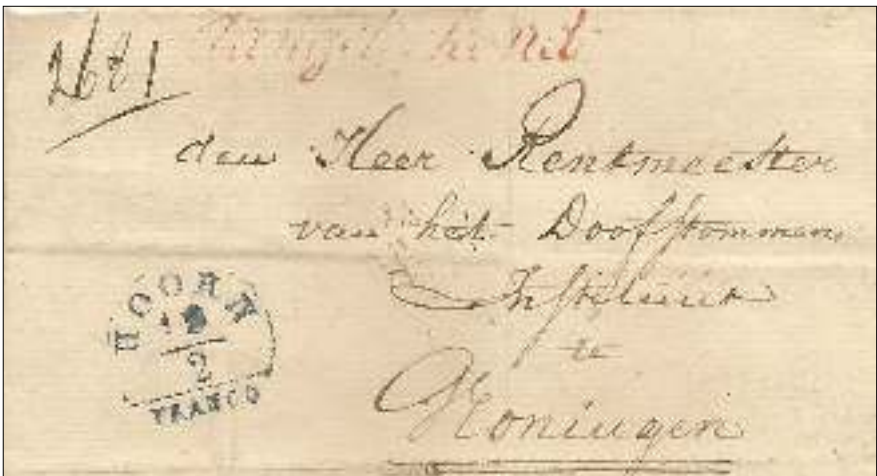 den Heer Rentmeester
van het Doofstommen
Instituut
te
Groningen
HOORN
2
FRANCO